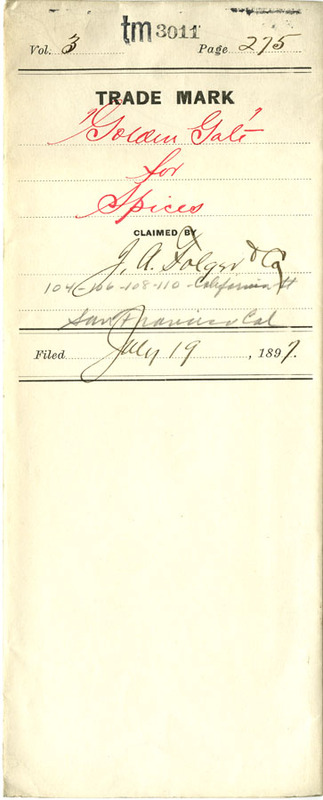 tm 3011
Vol. 3 Page 275
TRADE MARK
"Golden Gate"
for
Spices
CLAIMED BY
J. A. Folger & Co
104-106-108-110-California St
San Francisco Cal
Filed July 19, 1897.